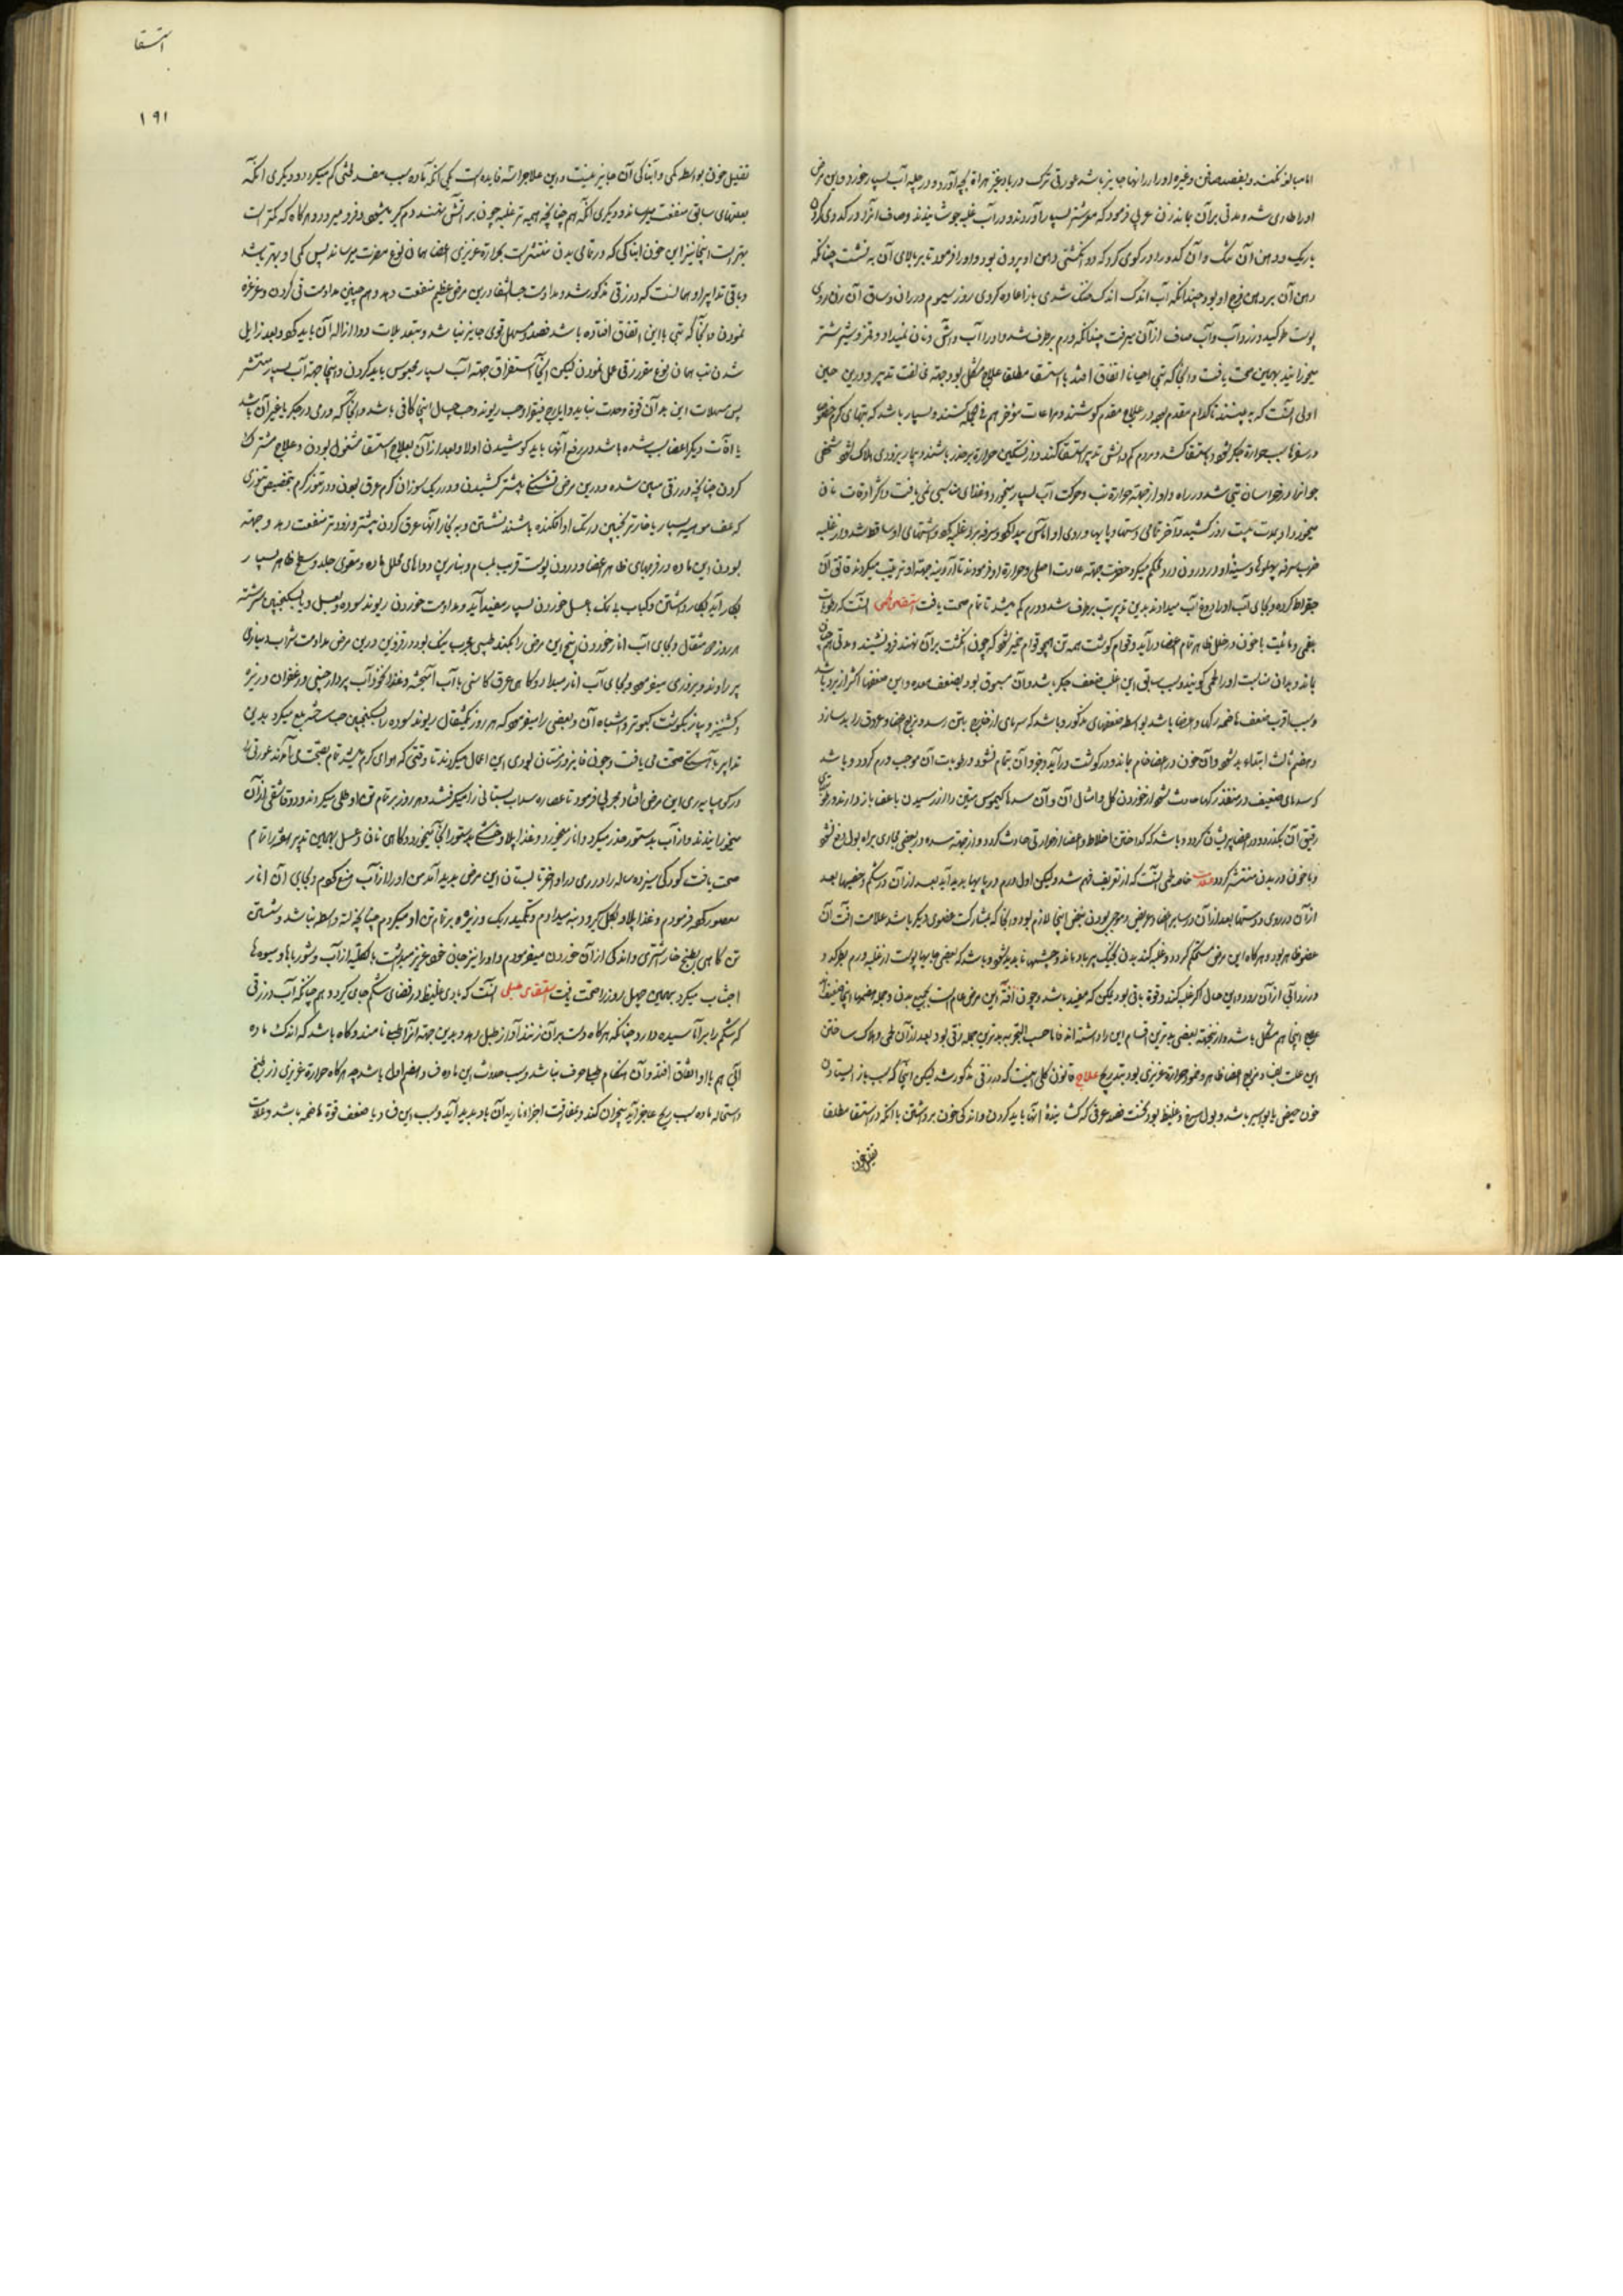 استسقا
١٩١
اما مبالغه نکنند و بفصد صافن و غیره ادرار را نهما جایز باشد عورتی ترک در بادغیز هراة بچه آورد و در چله آب بسیار خورد و این مرض
او را طاری شد و مدتی بر آن بماند زن عربی فرمود که موی شتر بسیار آوردند و در آب غلبه جوشانیدند و صاف
باریک و دهن آن تنک و آن کدو را در کوی کرد که دو انگشتی دهن او بیرون بود و او را فرمود تا بر بالای آن به نشست چنانکه
دهن آن بر دهن فرج او بود چندانکه آب اندک اندک خنک شدی باز اعاده کردی روز سیوم در ران و ساق آن زن
پوست طرکید و زردآب و آب صاف از آن میرفت چندانکه ورم برطرف شد و او را آب و آش و نان نمیداد و شیر شتر
میخورانید بهمین صحت یافت و آنجا که تبی احیانا اتفاق افتد با استسقا مطلقا علاج مشکل بود جهة مخالفت تدبیر و درین حین
اولی آنست که به بینند تا کدام مقدم بوده در علاج مقدم کوشند و مراعات مؤخر هم فی الجمله کنند و بسیار باشد که تبهای گرم
سبب حرارة جگر شود و باستسقا کشد و مردم کم دانش تدبیر استسقا کنند و از تسکین حرارة بر حذر باشند و بیمار بزودی هلاک شود شخصی
جوانرا در خراسان تبی شد در راه و او از جهة حرارة تب و حرکت آب بسیار میخورد و غذای مناسبی نمی یافت و اکثر اوقات نان
میخورد او مدت بیست روز کشید و آخر تمامی دستها و پایها و روی او آماس پیدا کرد و سرفه برو غلبه کرد و اشتهای او ساقط شد و از غلبه
ضرب سرفه پهلوها و سینه او در درون درد محکم میکرد حضرت جهة عادت اصلی و حرارة او فرمودند تا
بقراط کرده و بجای آب او را دوغ آب میدادند بدین تدبیر تب برطرف شد و ورم کم میشد تا تمام صحت یافت استسقای لحمی آنست که رطوبات
بلغمی و مائیت با خون در خلل ظاهر تمام اعضا درآید و قوام گوشت همه تن همچو قوام خمیر شود که چون انگشت بر آن نهند فرو نشیند و مدتی هم چنان
بماند و بدان مناسبت او را لحمی گویند و سبب سابق این اغلب ضعف جگر باشد و آن مسبوق بود بضعف معده و این ضعفها اکثر از برد باشد
و سبب اقرب ضعف هاضمه رگها و اعضا باشد بواسطه ضعفهای مذکور و باشد که سرمای از خارج بتن رسد و مزاج اعضا و عروق را بد سازد
و هضم ثالث ابتداء بد شود و آن خون در اعضا خام بماند و در گوشت درآید و جزو آن بتمام نشود و رطوبت آن موجب ورم گردد و باشد
که سدهای ضعیف در منفذ رگها حادث شود از خوردن گل و امثال آن و آن سدها کیموس متین را از رسیدن باعضا باز دارند و
رقیق آن بگذرد و در اعضا پریشان گردد و باشد که گداختن اخلاط و اعضا از حرارتی حادث گردد و از جهة سده در بعضی مجاری براه بول دفع نشود
و با خون در بدن منتشر گردد علامت خاصه لحمی آنست که از تعریف فهم شد ولیکن اول ورم در پایها پدید آید بعد از آن در شکم و خصیها بعد
از آن در روی و دستها بعد از آن در سایر اعضا و عریض و موجی بودن نبض اینجا لازم بود و در آنجا که بمشارکت عضوی دیگر باشد علامت آفت آن
عضو ظاهر بود و هرگاه این مرض مستحکم گردد و غلبه کند بدن بخیک پر باد ماند و چشمها ناپدید شود و باشد که بعضی جایها پوست از غلبه ورم بطرکد و
زردآبی از آن رود و این حال اگر غلبه کند و قوة باقی بود ممکن که مفید باشد و چون آفة این مرض عام است بجمیع بدن و جمله هضمها اینجا ضعیفند
علاج اینجا هم مشکل باشد و از اینجهة بعضی بدترین اقسام این را دانسته اند فاما حسب التجربه بدترین جمله زقی بود بعد از آن لحمی و هلاک ساختن
این علت بفساد مزاج اعضا ظاهر و غمور حرارة غریزی بود بتدریج علاج قانون کلی اینست که در زقی مذکور شد لیکن اینجا که سبب باز ایستادن
خون حیض یا بواسیر باشد و بول سرخ و غلیظ بود نخست فصد عرقی که گشاینده آنها باید کردن و اندکی خون برداشتن با آنکه در استسقا مطلقا
تقلیل خون
تقلیل خون بواسطه کمی و آبناکی آن جایز نیست و این علاج را سه فایده است یکی آنکه ماده سبب مفسد فی را کم میگرداند و دیگری آنکه
بعضهای سابق منفعت میرساند و دیگری آنکه هم چنانچه هیمه تر غلبه چون بر آتش نهند دم گیر میشود و فرو میرد و هرگاه که کمتر است
بهتر است اینجا نیز این خون آبناکی که در تمامی بدن منتشر است بحرارة غریزی اعضا همان نوع مضرت میرساند پس کمی او بهتر باشد
و باقی تدابیر او همانست که در زقی مذکور شد و مداومت حب الشفا درین مرض عظیم منفعت دهد و هم چنین مداومت قی کردن و غرغره
نمودن و آنجا که تبی با این اتفاق افتاده باشد فصد و مسهل قوی جایز نباشد و بتعدیلات دوا ازاله آن باید کرد و بعد زایل
شدن تب همان نوع مقرر زقی عمل نمودن لیکن آنجا استفراق جهة آب بسیار محبوس باید کردن و اینجا جهة آب بسیار منتشر
پس مسهلات این بدان قوة و حدت نباید و ایارج فیقرا و حب ریوند و حب جبال اینجا کافی باشد و آنجا که ورمی در جگر یا غیر آن باشد
یا آفات دیگر اعضا سبب شده باشد در رفع آنها باید کوشیدن اولا و بعد از آن بعلاج استسقا مشغول بودن و علاج مشترک
کردن چنانچه در زقی مبین شده و درین مرض تشنگی بیشتر کشیدن و در ریک سوزان گرم عرق نمودن و در تنور گرم بتخصیص تنوری
که علف مومیه بسیار یا خار ترنجبین در تک او افکنده باشند نشستن و به بخار آنها عرق کردن بیشتر و زودتر منفعت دهد و جهة
بودن این ماده در فرجهای ظاهر اعضا و درون پوست قریب بمسام و بنابرین دواهای محلل ماده و مقوی جلد و سطح ظاهر بسیار
بکار آید بکار داشتن و کباب بی نمک با عسل خوردن بسیار مفید آید و مداومت خوردن ریوند سوده و بعسل و یا سکنجبین سرشته
هر روز مثقال و بجای آب انار خوردن بیخ این مرض را بکند طبیبی مجرب نیک بود در قزوین درین مرض مداومت شراب دیناری
پر راوند و بزوری میفرمود و بجای آب انار میداد و گاهی عرق کاسنی با آب آمیخته و غذا نخودآب پر دارچینی و زعفران و زیره
و گشنیز و پیاز بگوشت کبوتر و اشباه آن و بعضی را میفرمود که هر روز یکمثقال ریوند سوده را بسکنجبین حب ساخته بلع میکرد بدین
تدابیر باستگی صحت می یافت و چون فایز و زمستان بودی این اعمال میکردند تا وقتی که هوای گرم میشد تمام بصحت می آمدند عورتی را
در کوهپایه ری این مرض افتاد مجربی فرمود تا عصاره سداب بستانی را میگرفتند و هر روز بر تمام تن او طلی میکردند و دو قاشقی از آن
میخورانیدند و از آب بدستور حذر میکرد و انار میخورد و غذا پلاو خشکه بدستور انجا میخورد و گاهی نان و عسل بهمین تدبیر بعد را تمام
صحت یافت کودکی سیزده ساله را در ری در اواخر تابستان این مرض پدید آمد من او را از آب منع کردم و بجای آن انار
معصور کرده فرمودم و غذا پلاو بگل گیرود نبه میدادم و بتکمید ریک و زیره بر تمام تن او میکردم چنانچه لته واسطه نباشد و شستن
تن گاهی بطبخ خار شتری و اندکی از آن خوردن میفرمودم و او را نیز جان خود عزیز میداشت بالکلیه از آب و شورباها و میوها
اجتناب میکرد بهمین چهل روز را صحت یافت استسقای طبلی آنست که بادی غلیظ در فضای شکم جای گیرد و هم چنانکه آب در زقی
که شکم را برآماسیده دارد چنانکه هرگاه دست بر آن زنند آواز طبل دهد و بدین جهة آنرا طبلی نامند و گاه باشد که اندک ماده
آبی هم با او اتفاق افتد و آن هنگام طبلی صرف نباشد و سبب حدوث این ماده فساد هضم اول باشد چه هرگاه حرارة غریزی از طبخ
و استحاله ماده سبب ریح عاجز آید تبخیر آن کند و بمفارقت اجزاء ناریه آن باد پدید آید و سبب این فساد یا ضعف قوة هاضمه باشد و علامت